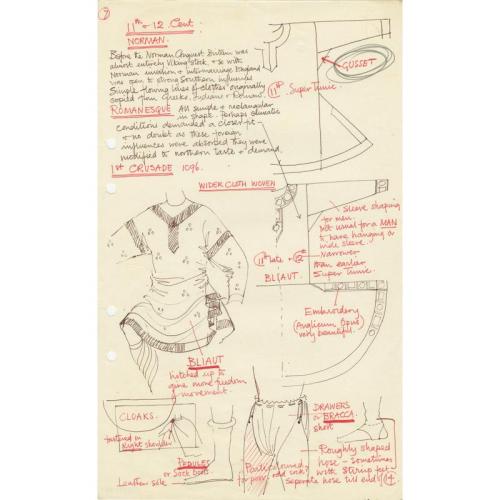 7
11th + 12 Cent:
NORMAN.
Before the Norman Conquest Britain was
almost entirely Viking stock, + so with
Norman invasion + intermarriage England
was open to strong Southern influence
Simple flowing lines of clothes originally
copied from Greeks, Indians + Romans.
ROMANESQUE All simple & rectangular
in shape. Perhaps climatic
conditions demanded a closer fit -
+ no doubt as these foreign
influences were absorbed they were
modified to northern taste + demand.
1st CRUSADE 1096.
GUSSET
11th Super Tunic.
WIDER CLOTH WOVEN
Sleeve shaping
for men.
Not usual for a MAN
to have hanging or
wide sleeve.
Narrower
than earlier
Super Tunic.
11th late + 12th
BLIAUT.
Embroidery
(Anglicum Opus)
very beautiful.
BLIAUT
hitched up to
give more freedom
of movement.
CLOAKS.
fastened on
Right shoulder
PEDULES
or Sock boots.
Leather sole
DRAWERS
or BRACCA.
short
Roughly shaped
hose - Sometimes
with stirrup feet -
Seperate hose till end of 14